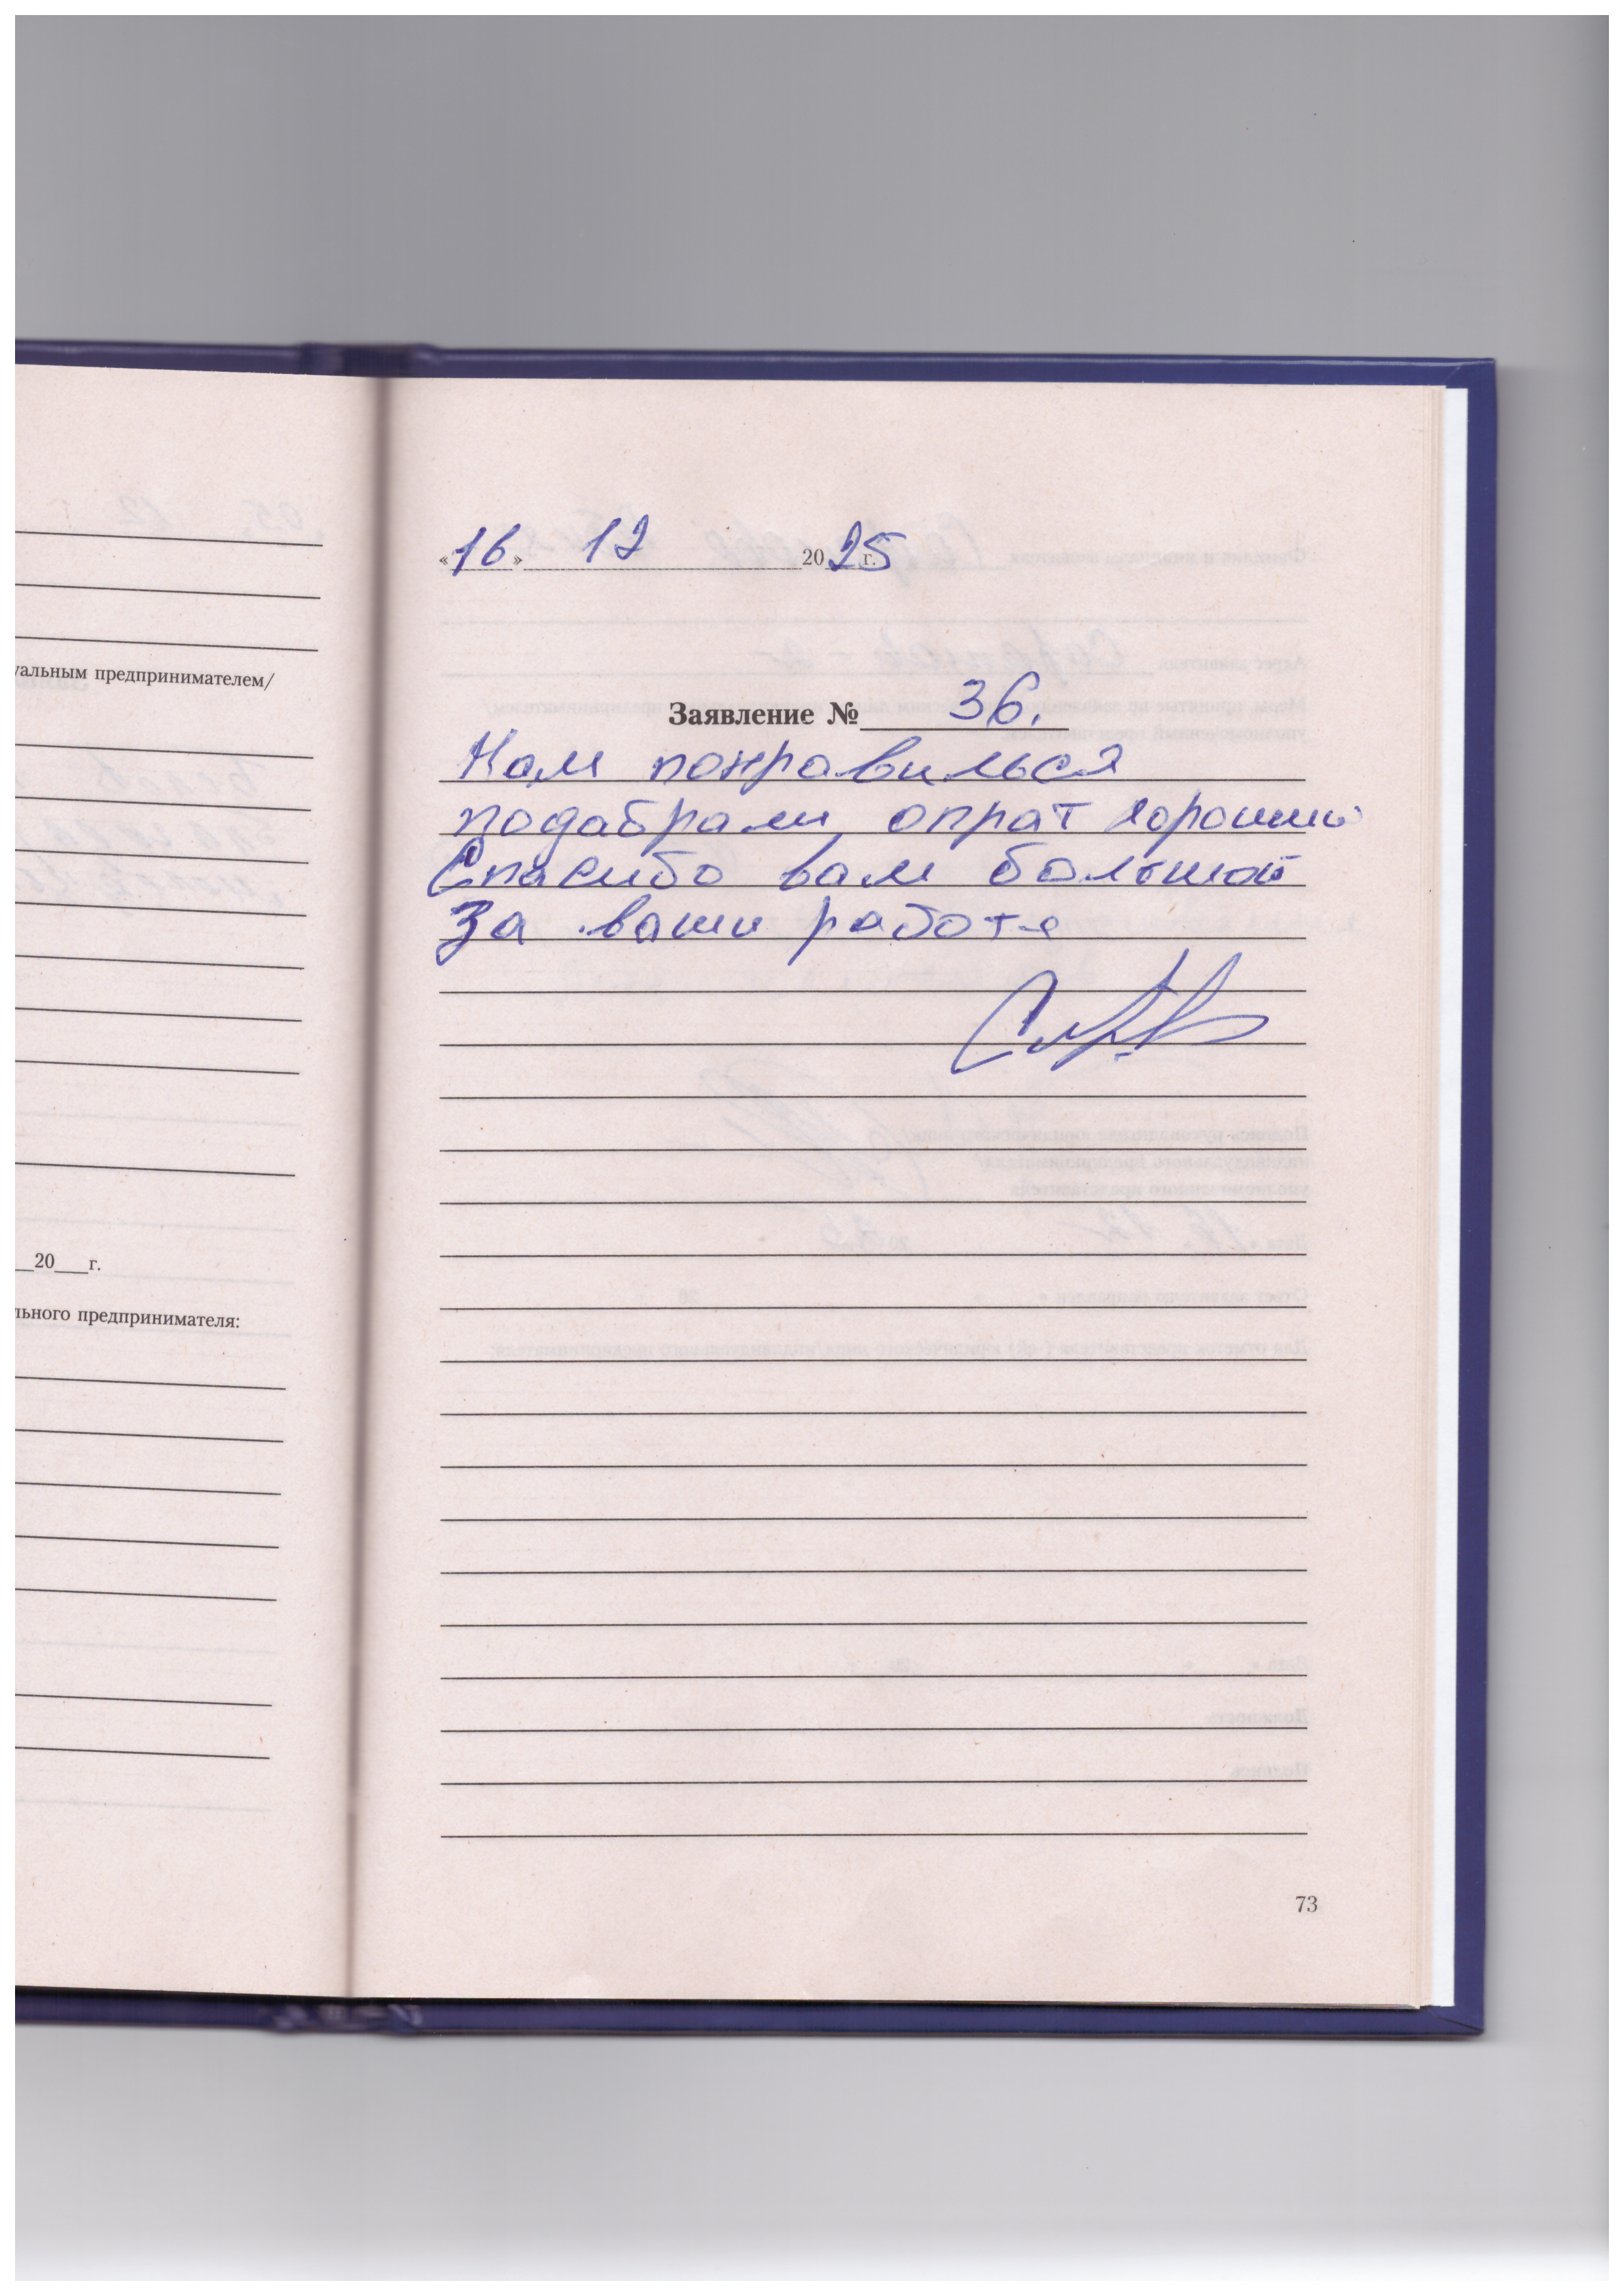 уальным предпринимателем/
20 г.
льного предпринимателя:
«16» 12 2025 г.
Заявление № 36.
Нам понравилься
подабрали опрат хороший
Спасибо вам болшой
За ваши работе
73